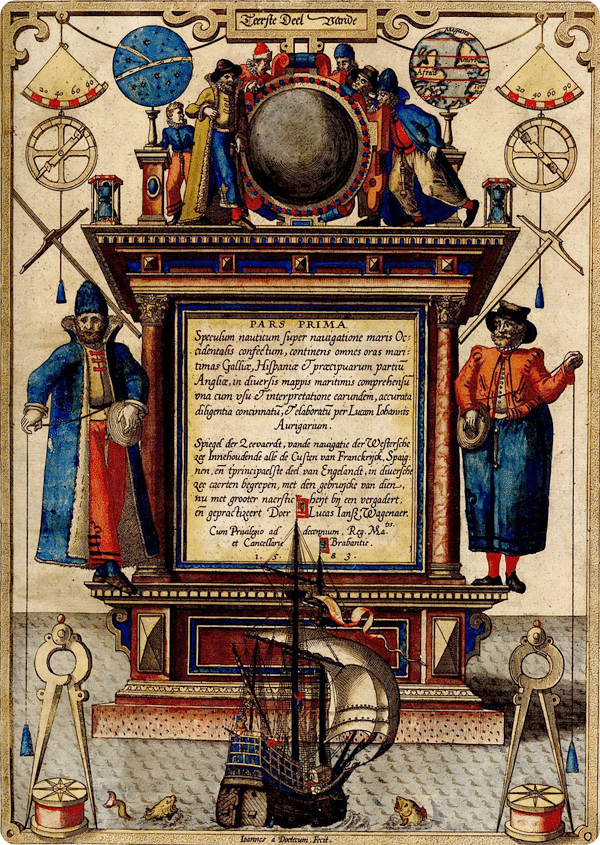 Teerste Deel Vande
20 40 60 80
Magellani
Africa
Ameri
20 40 60 80
PARS PRIMA
Speculum nauticum super nauigatione maris Oc-
cidentalis confectum, continens omnes oras mari-
timas Galliæ, Hispaniæ & præcipuarum partiũ
Angliæ, in diuersis mappis maritimis comprehensũ
vna cum vsu & interpretatione earundem, accurata
diligentia concinnatũ, & elaboratũ per Lucam Iohannis
Aurigarium.
Spiegel der Zeevaerdt, vande nauigatie der Westersche
Zee Innehoudende alle de Custen van Franckrijck, Spaig-
nen, eñ tprincipaelste deel van Engelandt, in diuersche
zee caerten begrepen, met den gebruijcke van dien,
nu met grooter naerstic hejt bij een vergadert,
eñ gepractizeert Doer Lucas Iansz Wagenaer.
Cum Priuilegio ad decennium, Reg. Matis.
et Cancellarie Brabantie.
1 5 8 3.
Ioannes à Doetecum, Fecit.